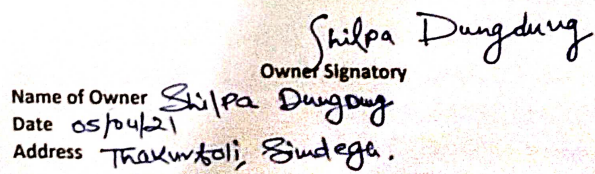 Shilpa Dungdung
Owner Signatory
Name of Owner Shilpa Dungdung
Date 05/04/21
Address Thakurtoli, Simdega.